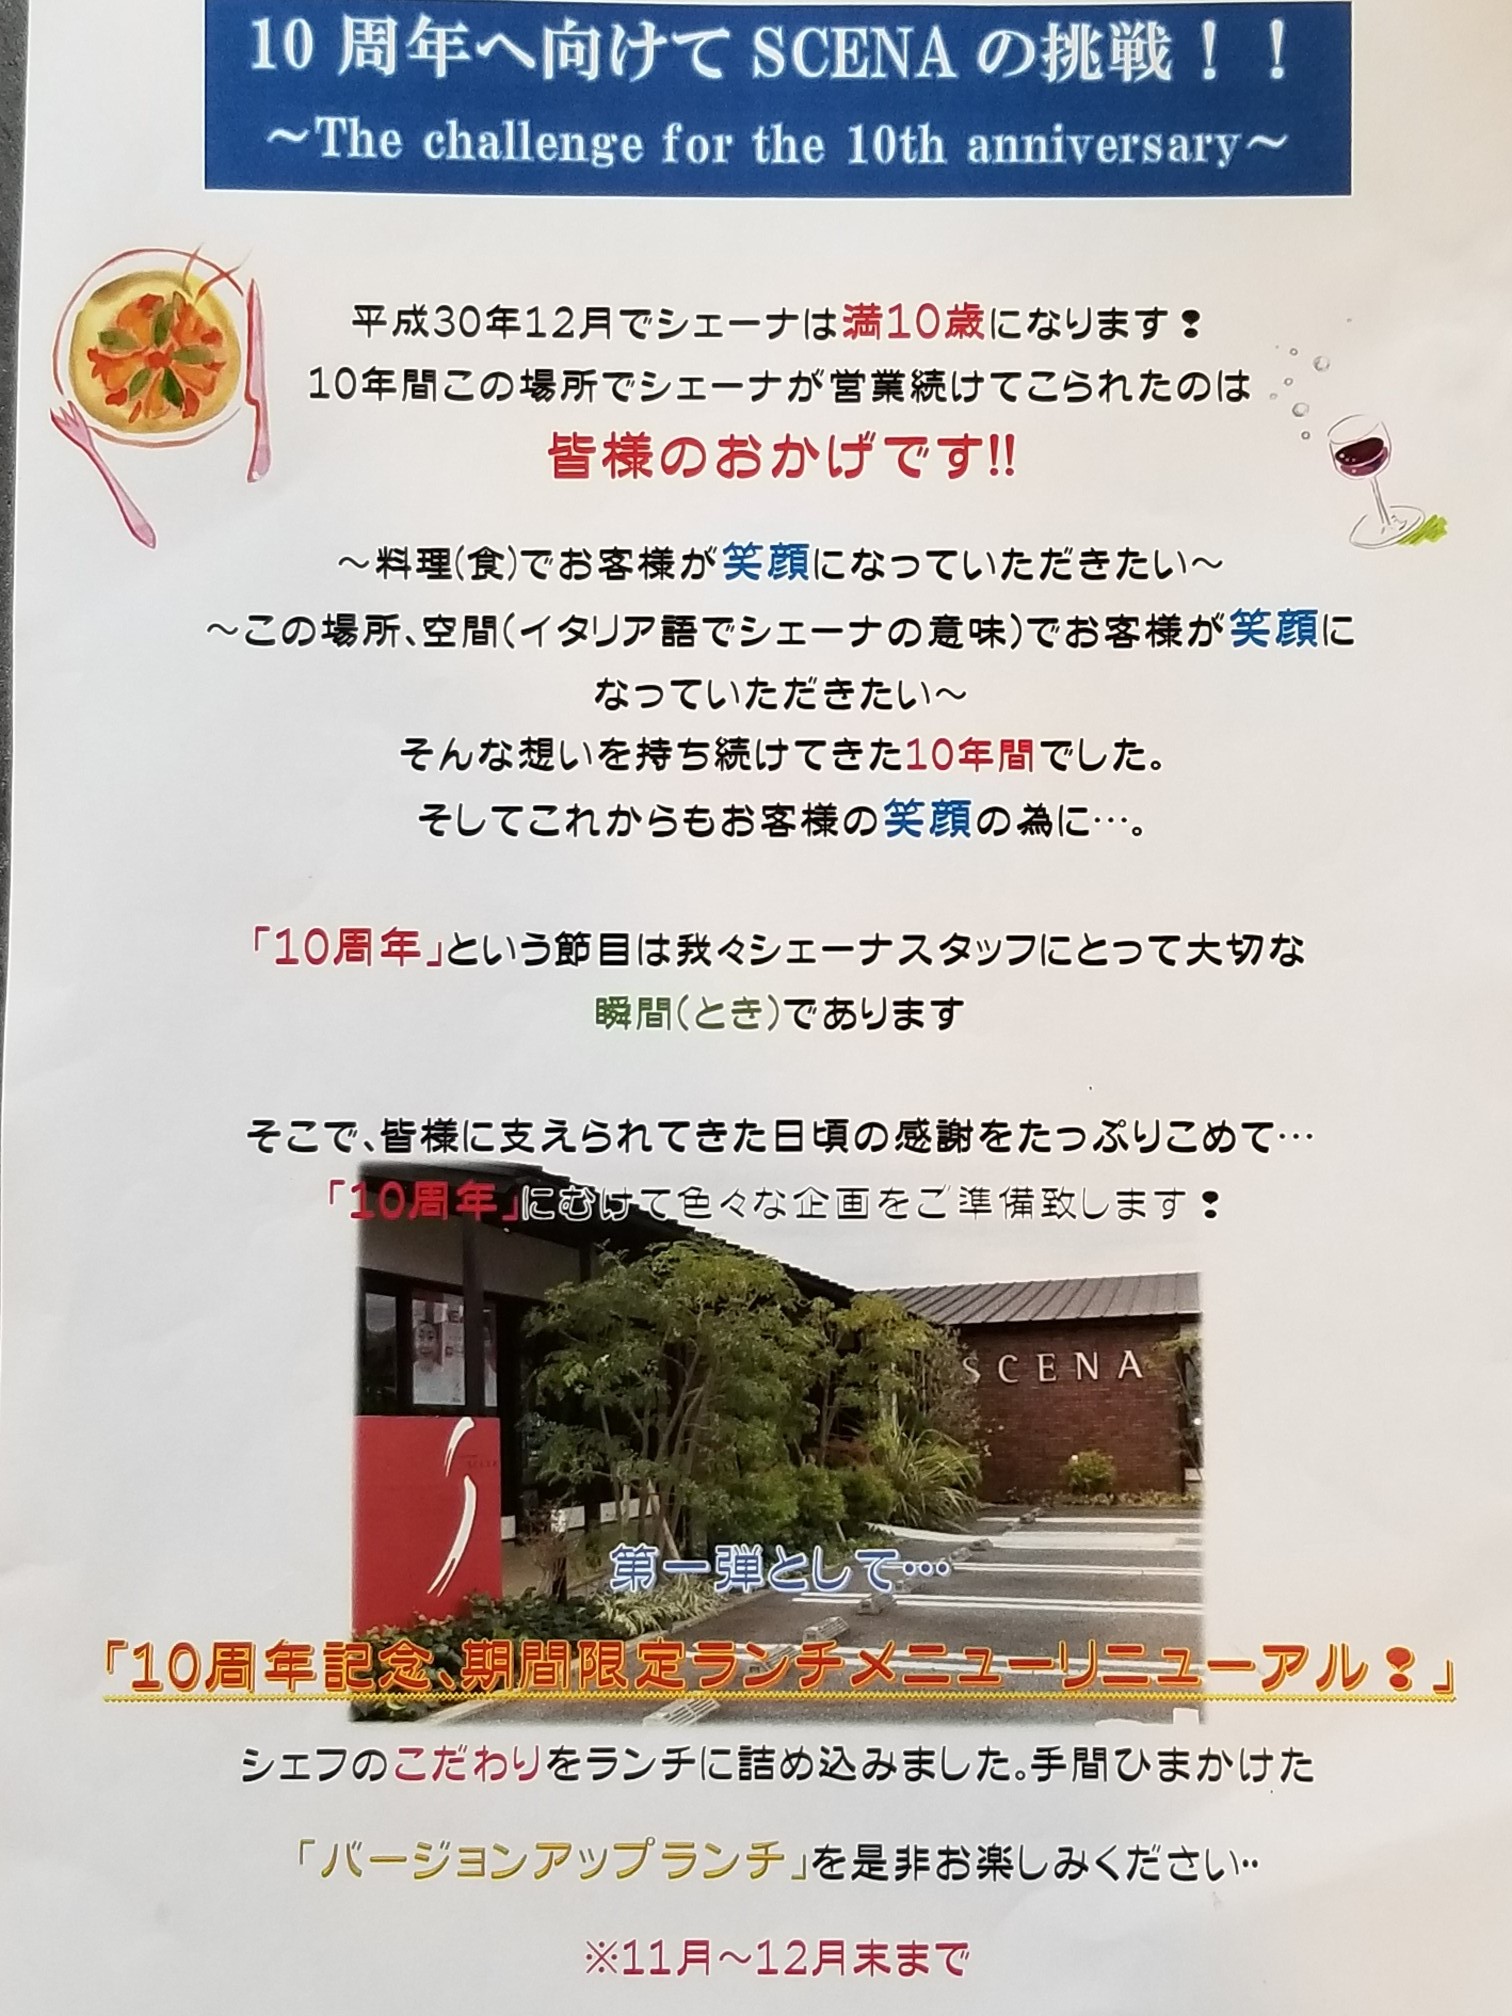 10 周年へ向けて SCENA の挑戦！！
～The challenge for the 10th anniversary～
平成30年12月でシェーナは満10歳になります！
10年間この場所でシェーナが営業続けてこられたのは
皆様のおかげです!!
～料理(食)でお客様が笑顔になっていただきたい～
～この場所、空間(イタリア語でシェーナの意味)でお客様が笑顔に
なっていただきたい～
そんな想いを持ち続けてきた10年間でした。
そしてこれからもお客様の笑顔の為に…。
「10周年」という節目は我々シェーナスタッフにとって大切な
瞬間(とき)であります
そこで、皆様に支えられてきた日頃の感謝をたっぷりこめて…
「10周年」にむけて色々な企画をご準備致します！
SCENA
第一弾として…
「10周年記念、期間限定ランチメニューリニューアル！」
シェフのこだわりをランチに詰め込みました。手間ひまかけた
「バージョンアップランチ」を是非お楽しみください‥
※11月～12月末まで